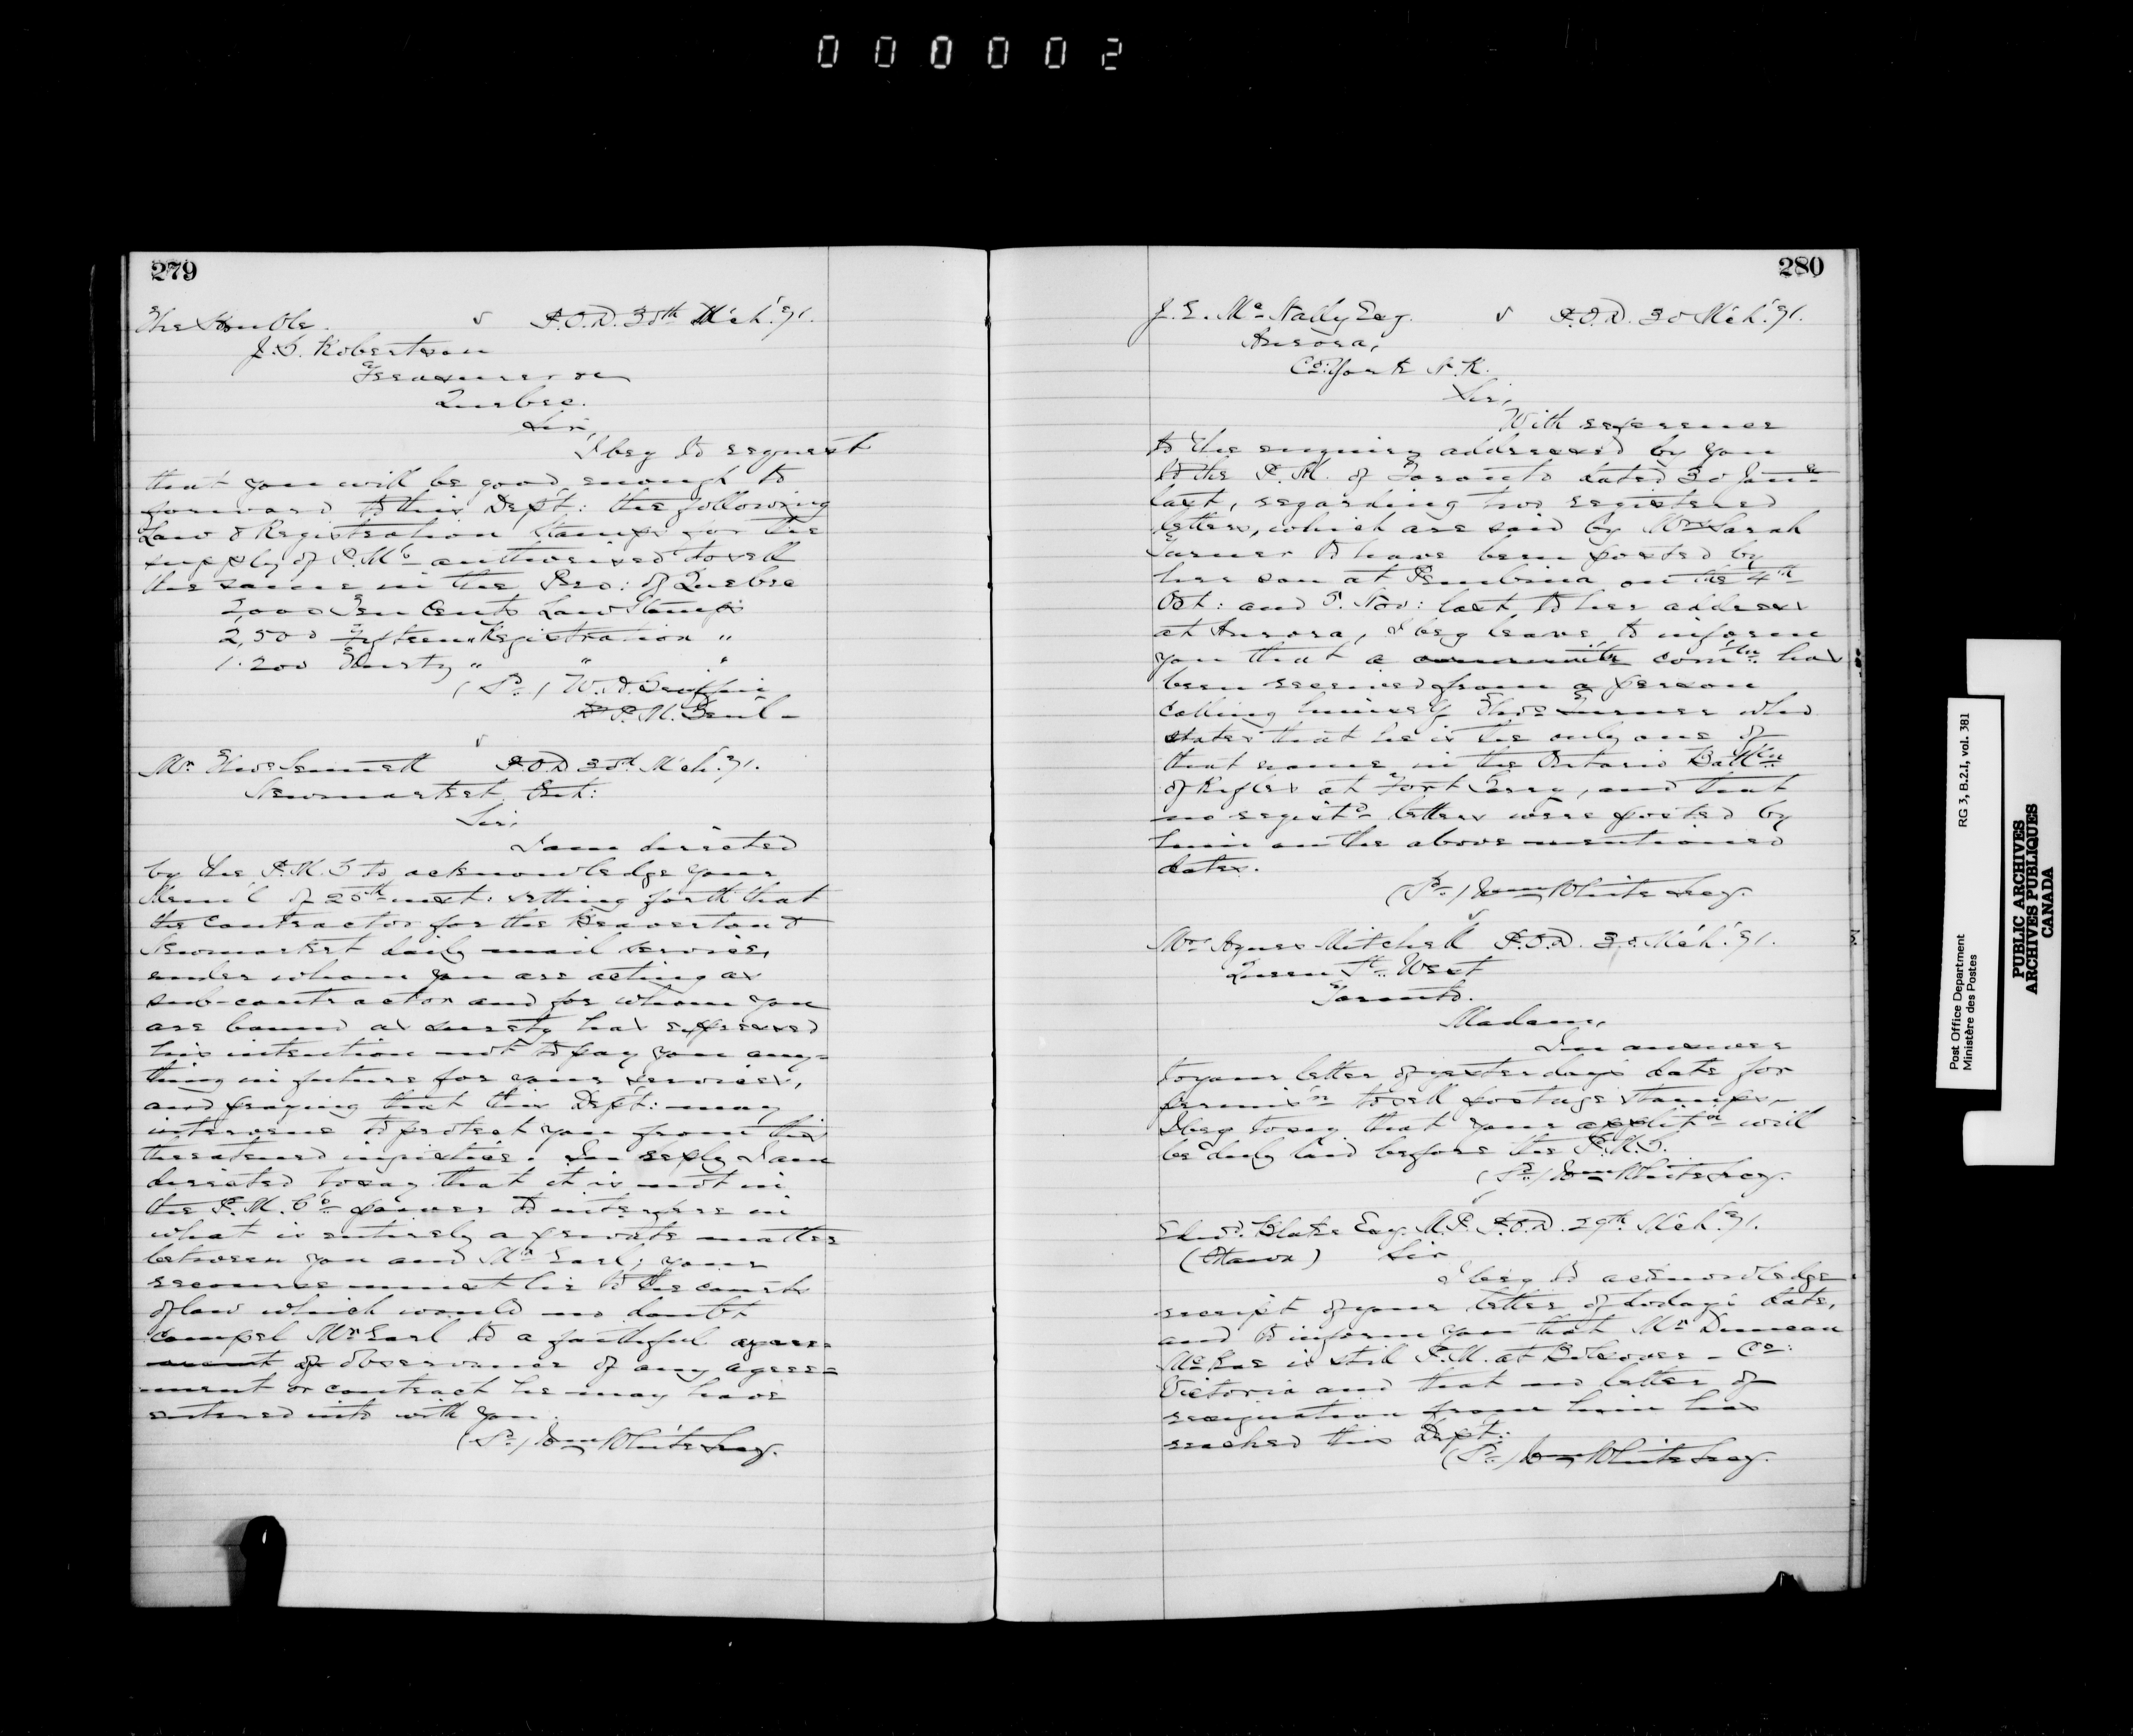 000002
279
The Hon'ble. P.O.D. 30th M'ch '71.
J. G. Robertson
Treasurer &c
Quebec.
Sir,
I beg to request
that you will be good enough to
forward to this Dep't: the following
Law & Registration Stamps for the
supply of P.Ms authorised to sell
the same in the Pro: of Quebec
2,000 Ten Cents Law Stamps
2,500 Fifteen " Registration "
1.200 Thirty " " "
(Sd.) W. H. Griffin
D P.M. Genl-
Mr Thos Sennett P.O.D 30th M'ch '71.
Newmarket, Ont:
Sir,
I am directed
by the P.M.G to acknowledge your
Mem'l of 20th inst: setting forth that
the contractor for the Beaverton &
Newmarket daily mail service,
under whom you are acting as
sub-contractor and for whom you
are bound as surety has expressed
his intention not to pay you any-
thing in future for your services,
and praying that this Dep't: may
intervene to protect you from this
threatened injustice. In reply I am
directed to say that it is not in
the P.M.Gs power to interfere in
what is entirely a private matter
between you and Mr Earl; your
recourse must lie to the courts
of law which would no doubt
compel Mr Earl to a faithful agree=
ment of observance of any agree=
ment or contract he may have
entered into with you.
(Sd.) Wm White Secy.
280
J. E. Mc Nally Esq. P.O.D. 30 M'ch '71.
Aurora,
Co: York N.R.
Sir,
With reference
to the enquiry addressed by you
to the P.M. of Toronto dated 30 Jany
last, regarding two registered
letters, which are said by Mrs Sarah
Turner to have been posted by
her son at Pembina on the 4th
Oct: and 5. Nov: last, to her address
at Aurora, I beg leave to inform
you that a com'tn has
been received from a person
calling himself Thos Turner who
states that he is the only one of
that name in the Ontario Batt'ln
of Rifles at Fort Garry, and that
no regist'd letters were posted by
him on the above mentioned
dates.
(Sd.) Wm White Secy.
Mrs Agnes Mitchell P.O.D. 30 M'ch '71.
Queen St. West
Toronto.
Madam,
In answer
to your letter of yesterday's date for
permis'n to sell postage stamps,
I beg to say that your applit'n will
be duly laid before the P.M.G.
(Sd.) Wm White Secy.
Edwd. Blake Esq. M.P. P.O.D. 29th M'ch '71.
(Ottawa) Sir
I beg to acknowledge
receipt of your letter of today's date,
and to inform you that Mr Duncan
McRae is still P.M. at Bolsover - Co:
Victoria and that no letter of
resignation from him has
reached this Dept:
(Sd.) Wm White Secy.
Post Office Department RG 3, B.2.I, vol. 381
Ministère des Postes
PUBLIC ARCHIVES
ARCHIVES PUBLIQUES
CANADA